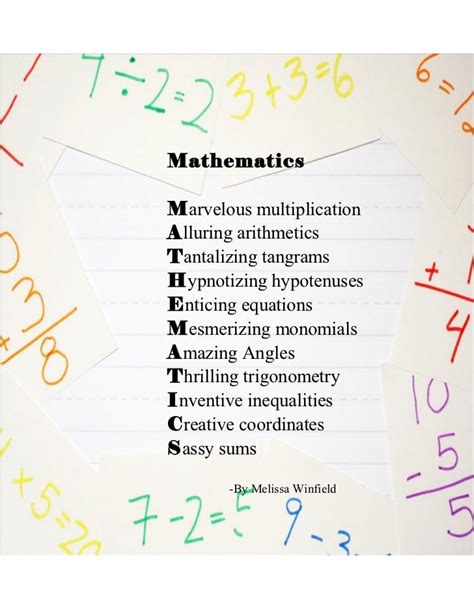 ÷2=2
3+3=6
6=1
Mathematics
Marvelous multiplication
Alluring arithmetics
Tantalizing tangrams
Hypnotizing hypotenuses
Enticing equations
Mesmerizing monomials
Amazing Angles
Thrilling trigonometry
Inventive inequalities
Creative coordinates
Sassy sums
-By Melissa Winfield
+
4
3
8
10
- 5
5
+5=20
7-2=5
9-3